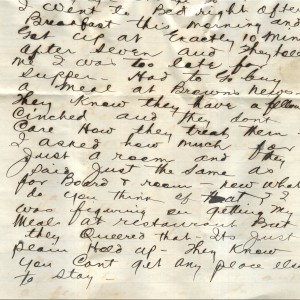 I Went to Bed right After
Breakfast this morning and
Got up at Exactly 10 Min
After Seven and They told
Me I was too late for
Supper - Had to Go buy
a Meal at Browns News-
They Know they have a fellow
Cinched and they dont
Care How they treat them
I asked how much for
Just a room and they
Said Just the Same as
for Board & room - now what
do you think of that? I
was figuring on getting my
Meals at restaurant But
they Queered that - Its Just
plain Hold up - They Know
you Cant get any place else
to stay -